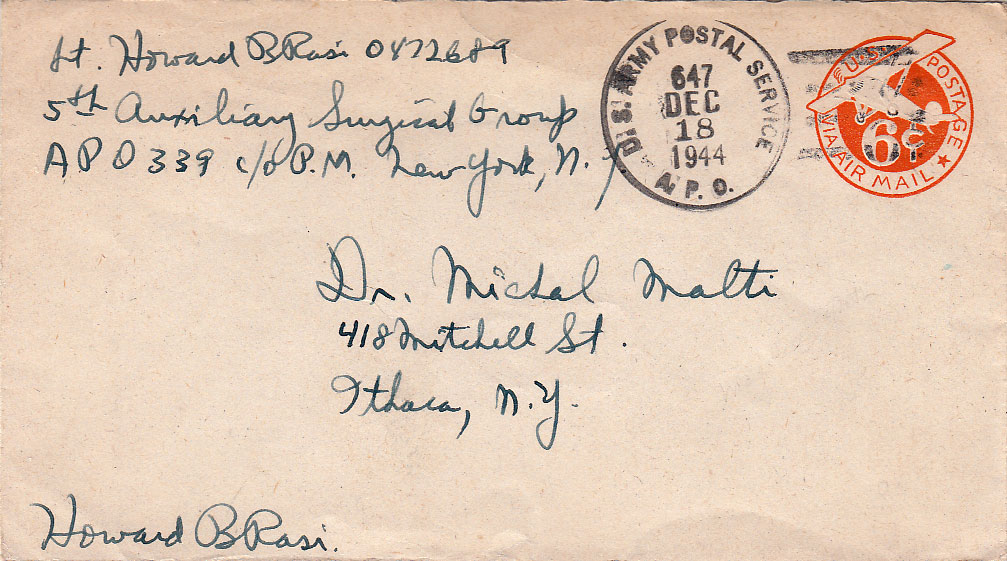 Lt. Howard B Rasi 0472689
5th Auxiliary Surgical Group
A P O 339 c/o P.M. New York, N.Y
U.S. ARMY POSTAL SERVICE
647
DEC
18
1944
A. P. O.
U.S. POSTAGE
6¢
VIA AIR MAIL
Dr. Michal Malti
418 Mitchell St.
Ithaca, N.Y.
Howard B Rasi.